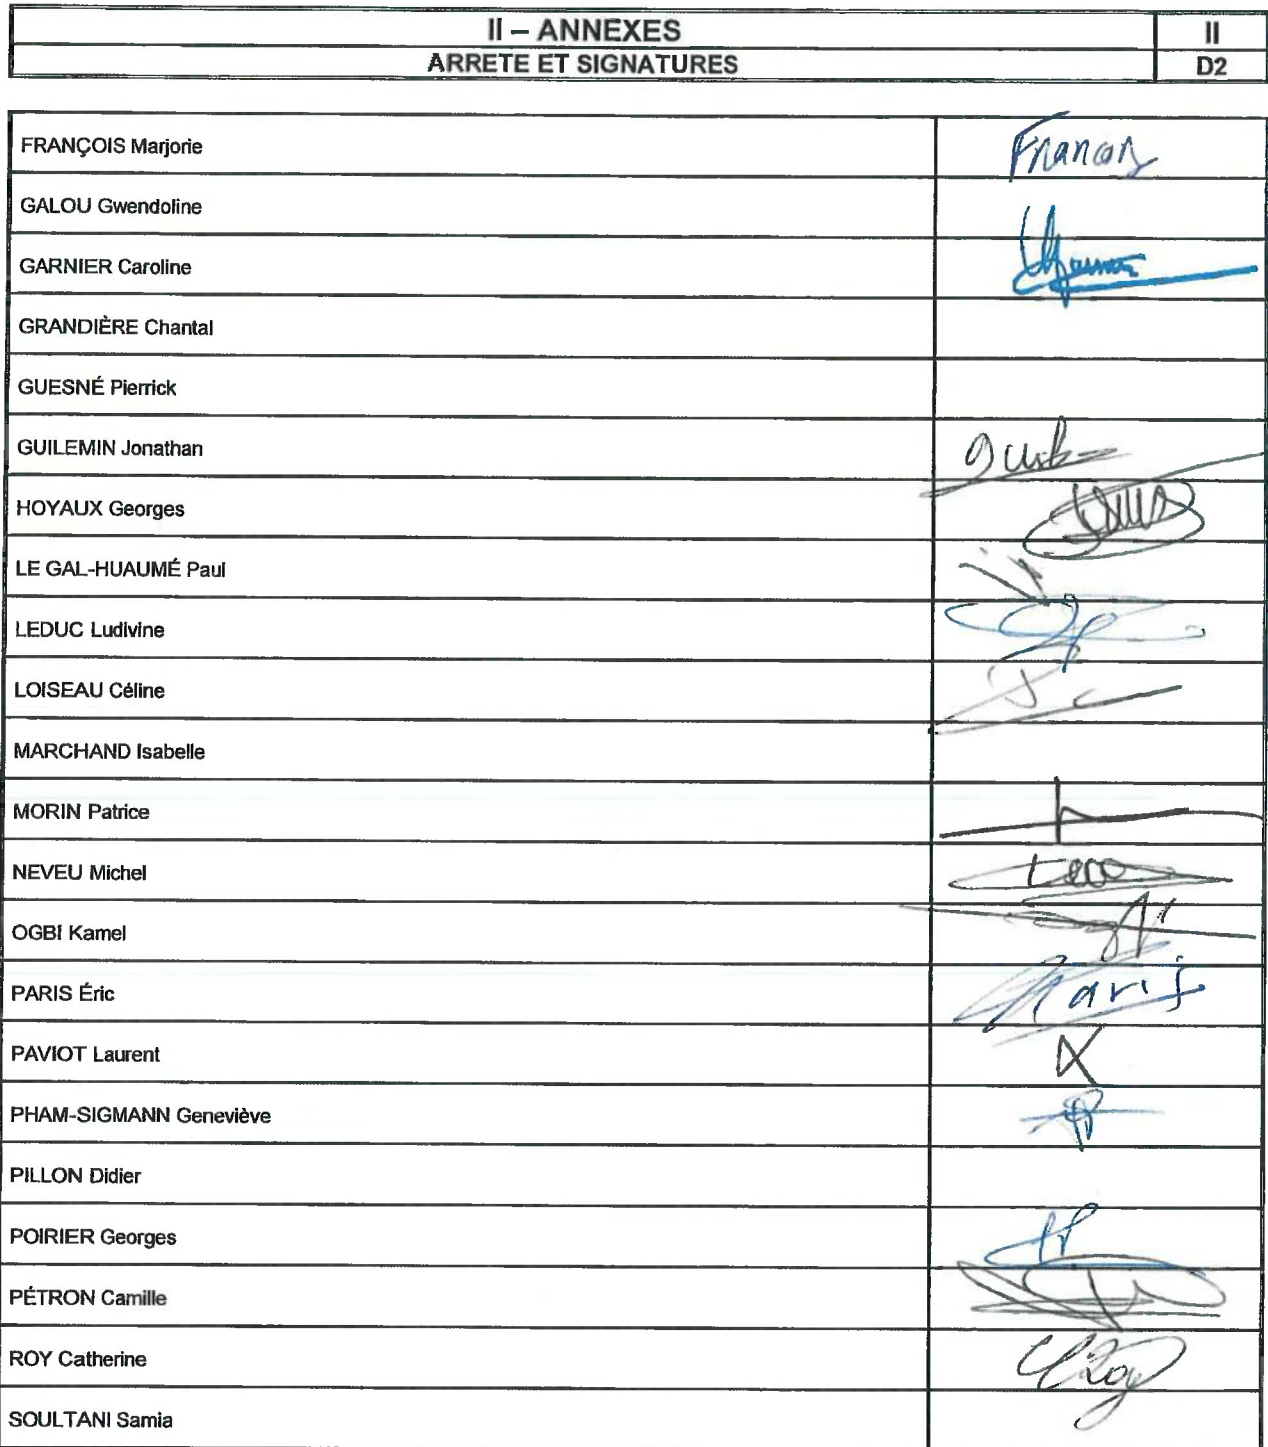 II – ANNEXES
II
ARRETE ET SIGNATURES
D2
FRANÇOIS Marjorie
GALOU Gwendoline
GARNIER Caroline
GRANDIÈRE Chantal
GUESNÉ Pierrick
GUILEMIN Jonathan
HOYAUX Georges
LE GAL-HUAUMÉ Paul
LEDUC Ludivine
LOISEAU Céline
MARCHAND Isabelle
MORIN Patrice
NEVEU Michel
OGBI Kamel
PARIS Éric
Paris
PAVIOT Laurent
PHAM-SIGMANN Geneviève
PILLON Didier
POIRIER Georges
PÉTRON Camille
ROY Catherine
SOULTANI Samia